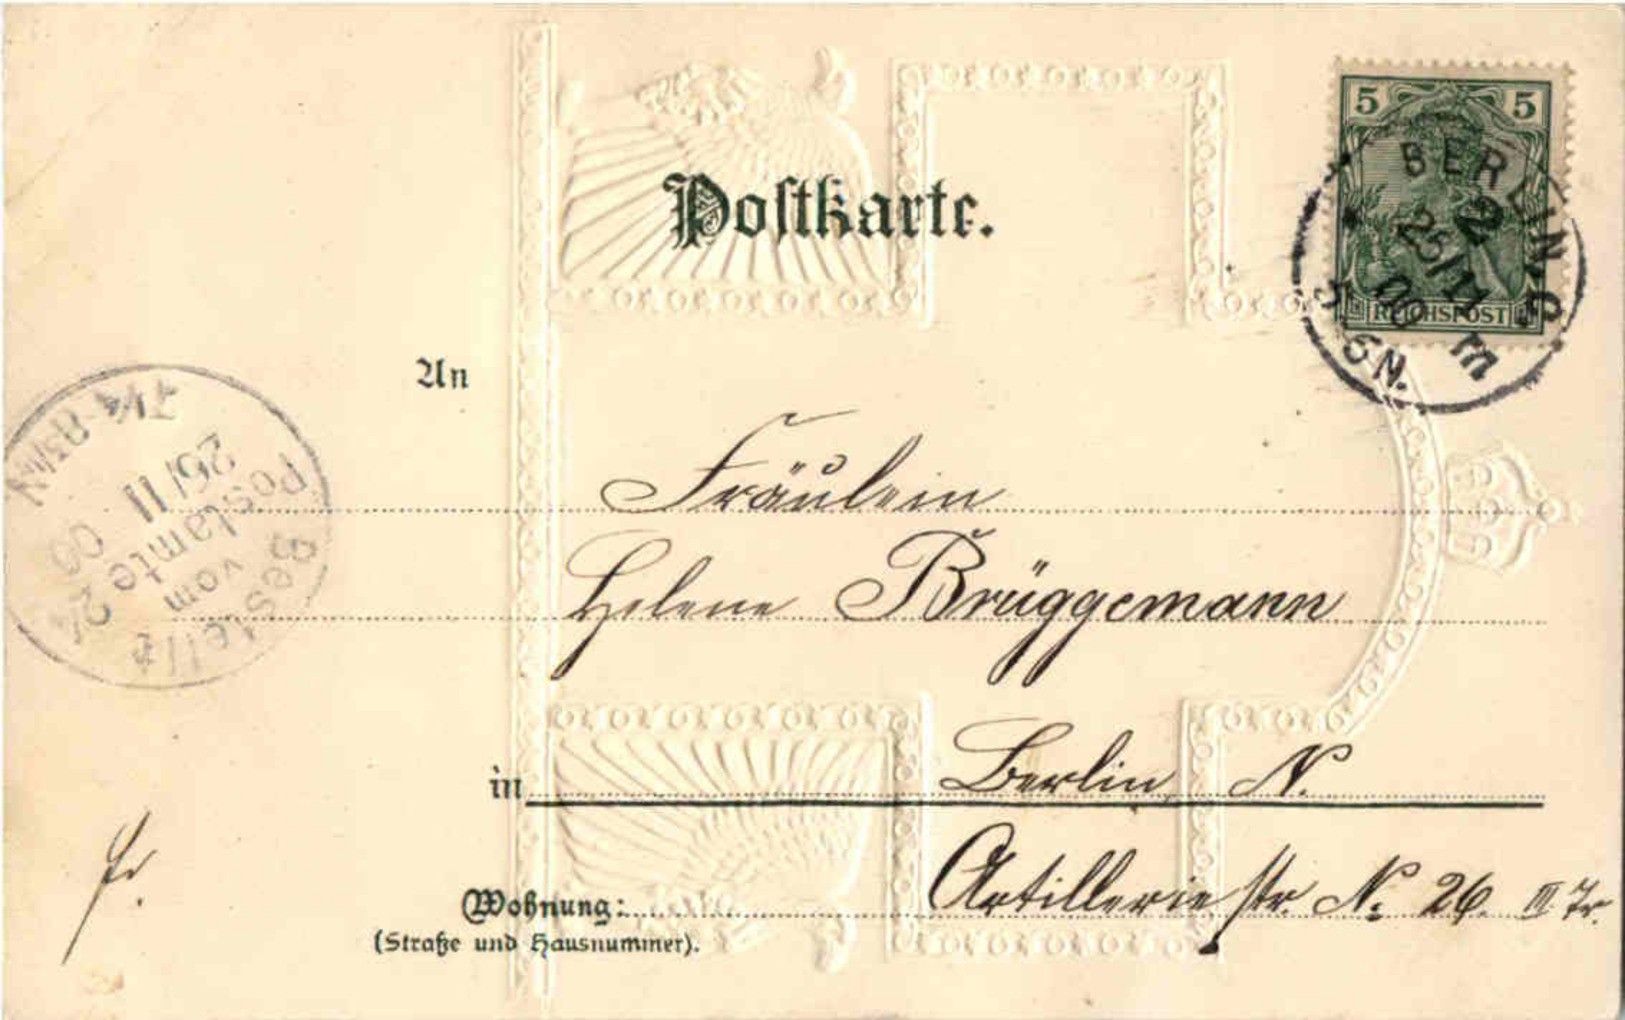 Postkarte.
5 5
REICHSPOST
BERLIN, C.
2
25/11
00
5-6N.
An
Bestellt
vom
Postamte 24
25/11
00
Fräulein
Helene Brüggemann
in Berlin N.
Wohnung: Artilleriestr. No 26. III Tr.
(Straße und Hausnummer).